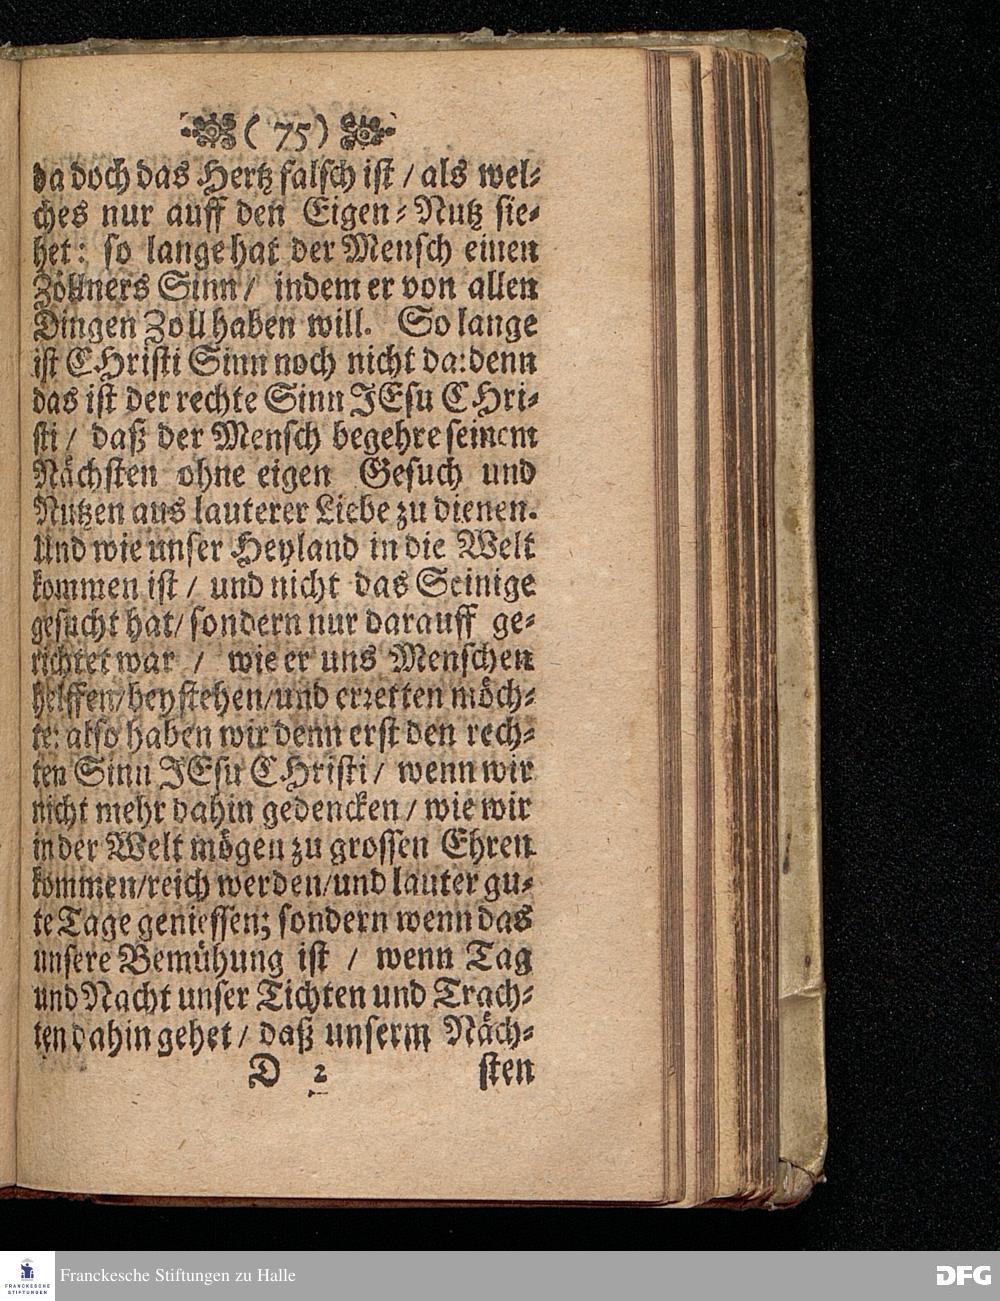 ( 75 )
da doch das Hertz falsch ist / als wel-
ches nur auff den Eigen-Nutz sie-
het: so lange hat der Mensch einen
Zöllners Sinn / indem er von allen
Dingen Zoll haben will. So lange
ist CHristi Sinn noch nicht da: denn
das ist der rechte Sinn JEsu CHri-
sti / daß der Mensch begehre seinem
Nächsten ohne eigen Gesuch und
Nutzen aus lauterer Liebe zu dienen.
Und wie unser Heyland in die Welt
kommen ist / und nicht das Seinige
gesucht hat / sondern nur darauff ge-
richtet war / wie er uns Menschen
helffen / beystehen / und erretten möch-
te: also haben wir denn erst den rech-
ten Sinn JEsu CHristi / wenn wir
nicht mehr dahin gedencken / wie wir
in der Welt mögen zu grossen Ehren
kommen / reich werden / und lauter gu-
te Tage geniessen; sondern wenn das
unsere Bemühung ist / wenn Tag
und Nacht unser Tichten und Trach-
ten dahin gehet / daß unserm Näch-
D 2 sten
FRANCKESCHE
STIFTUNGEN
Franckesche Stiftungen zu Halle
DFG